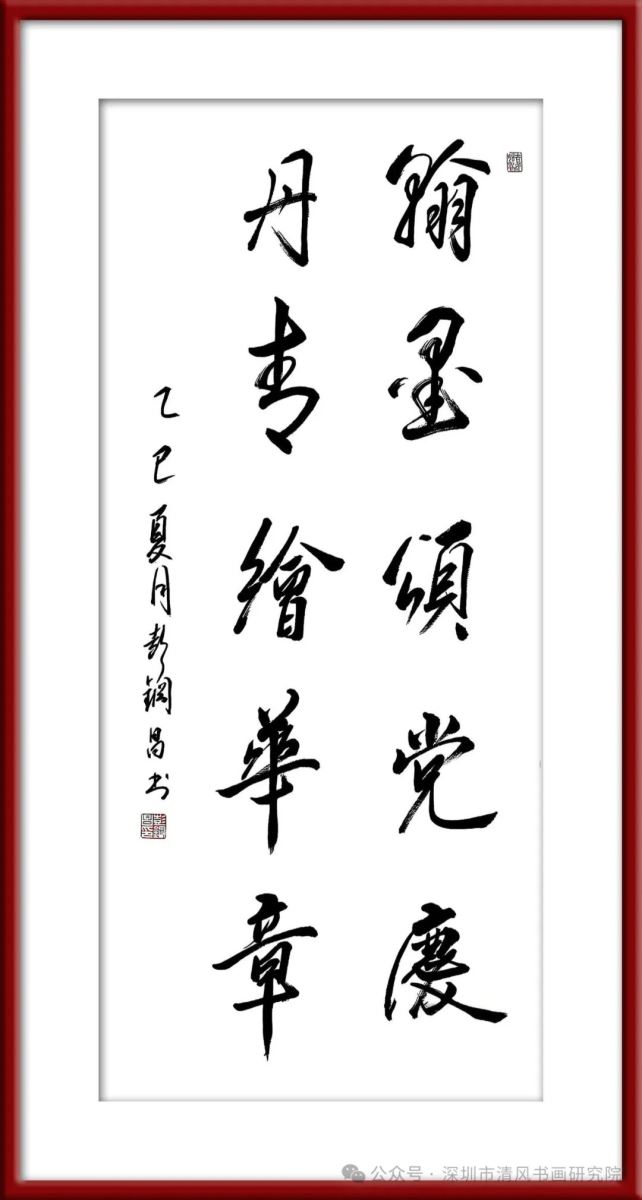 翰墨頌党慶
丹青繪華章
乙巳夏月彭鋼昌书
公众号·深圳市清风书画研究院